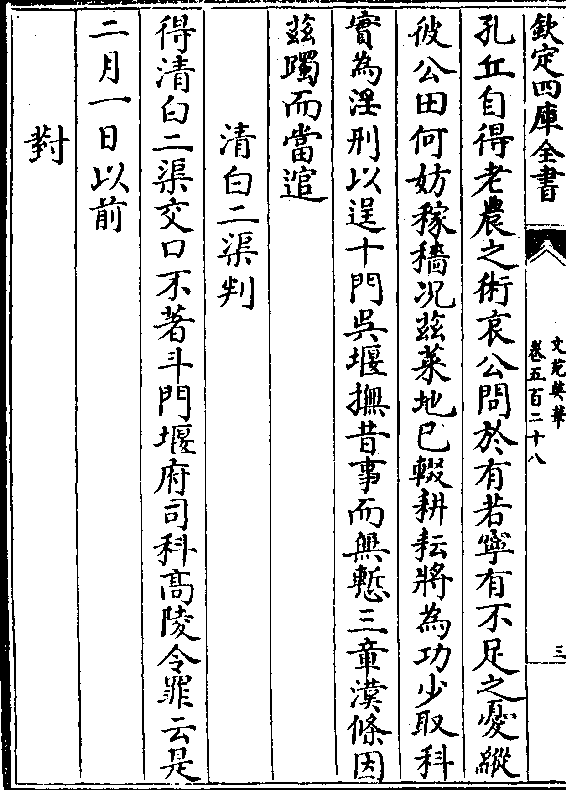 欽定四庫全書
文苑英華
卷五百二十八
三
孔丘自得老農之術哀公問於有若寧有不足之憂縱
彼公田何妨稼穡况兹萊地已輟耕耘將為功少取科
實為淫刑以逞十門吳堰撫昔事而無慙三章漢條因
兹躅而當逭
清白二渠判
得清白二渠交口不著斗門堰府司科髙陵令罪云是
二月一日以前
對